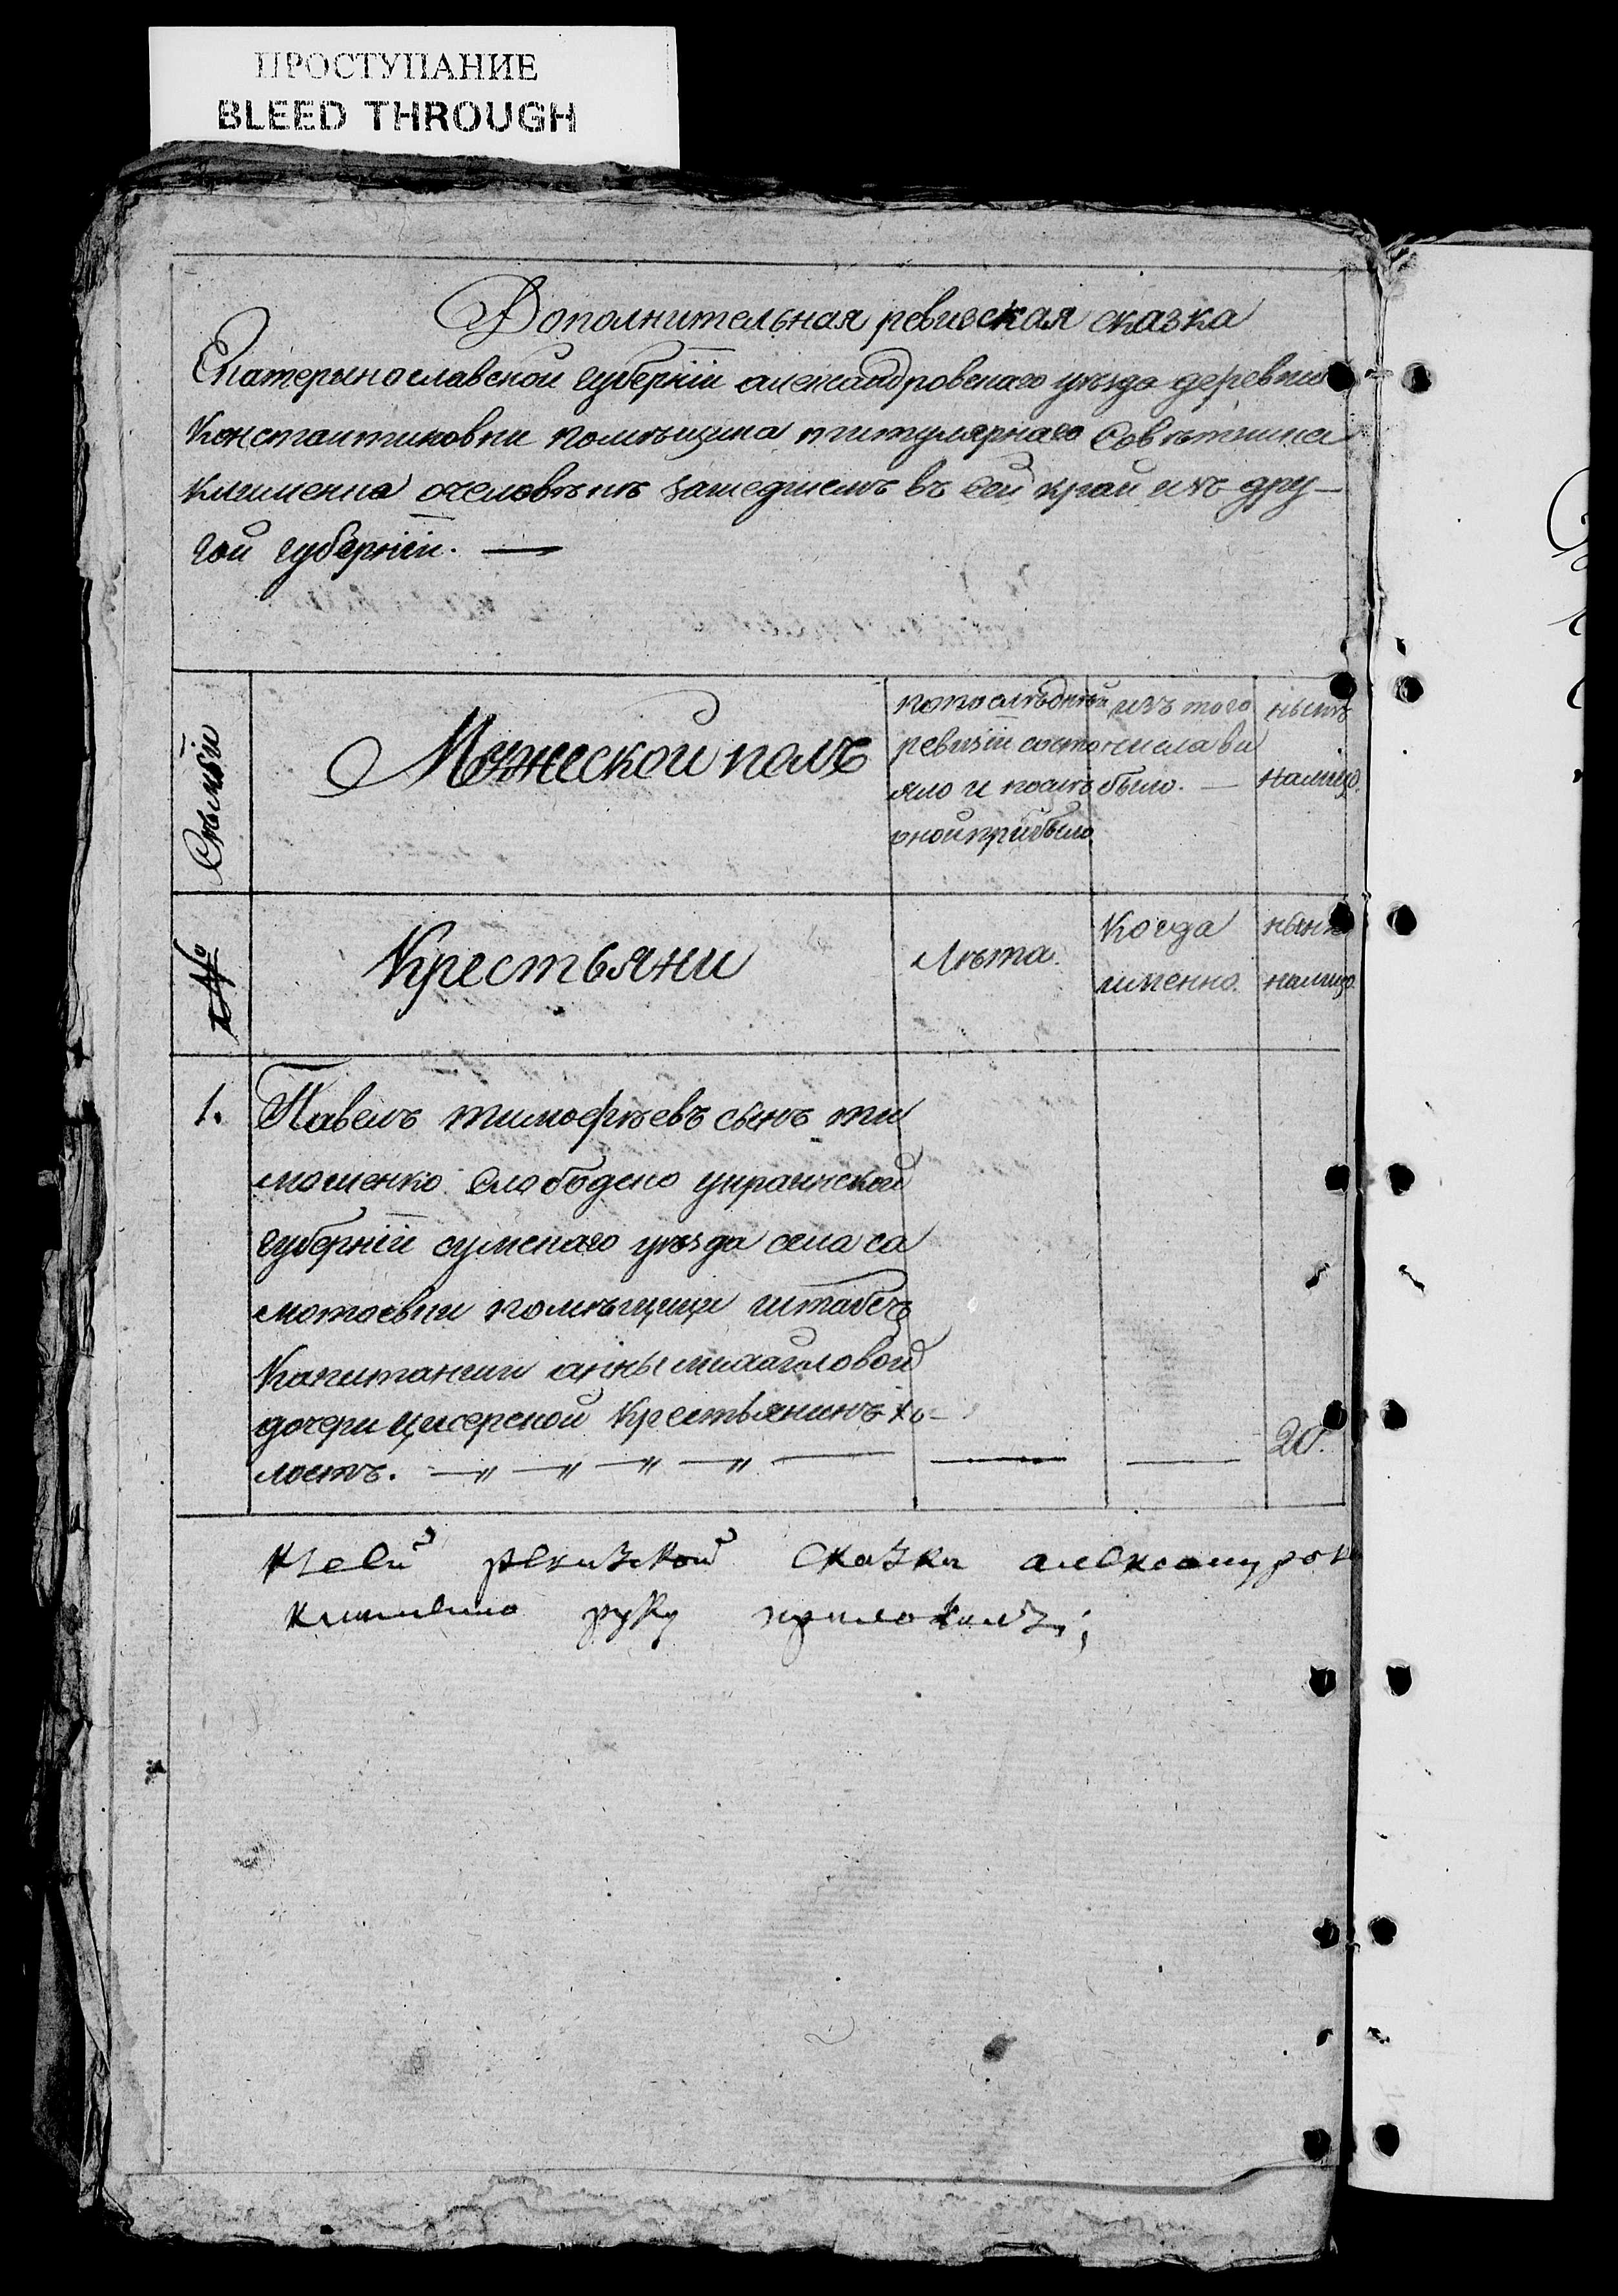 ПРОСТУПАНИЕ
BLEED THROUGH
Дополнительная ревизская сказка
Екатерынославской губернiи александровскаго уѣзда деревни
Константиновки помѣщика титулярнаго Совѣтника
клименка очеловѣкѣ зашедшемъ въ сей край изъ дру–
гой губернiи. —
Семьи
Мужеской полъ
попослѣдней
ревизiи состо
яло и послѣ
оной прибыло.
изъ того
числа вы
было. —
нынѣ
налицо.
№
Крестьяни
Лѣта.
Когда
именно.
нынѣ
налицо.
1. Павелъ тимофѣевъ сынъ ти
мошенко Слободско украинской
губернiи сумскаго уѣзда села са
мотоевки помѣщици штабсъ
Капитанши анны михайловой
дочери Крестьянинъ хо–
лостъ. — 〃 — 〃 — 〃 — 〃 — — — 20.
Ксей ревизской Сказки александров
клименко руку приложилъ;